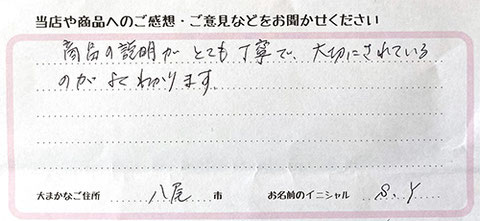 当店や商品へのご感想・ご意見などをお聞かせください
商品の説明がとても丁寧で、大切にされている
のがよくわかります。
大まかなご住所 八尾 市 お名前のイニシャル S.Y